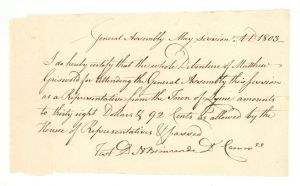 General Assembly May Session A.D. 1803
I do hereby certify that the whole Debenture of Matthew
Griswold for attending the General Assembly this session
as a Representative from the Town of Lyme amounts
to thirty eight Dollars & 92 Cents as allowed by the
House of Representatives & passed
Test